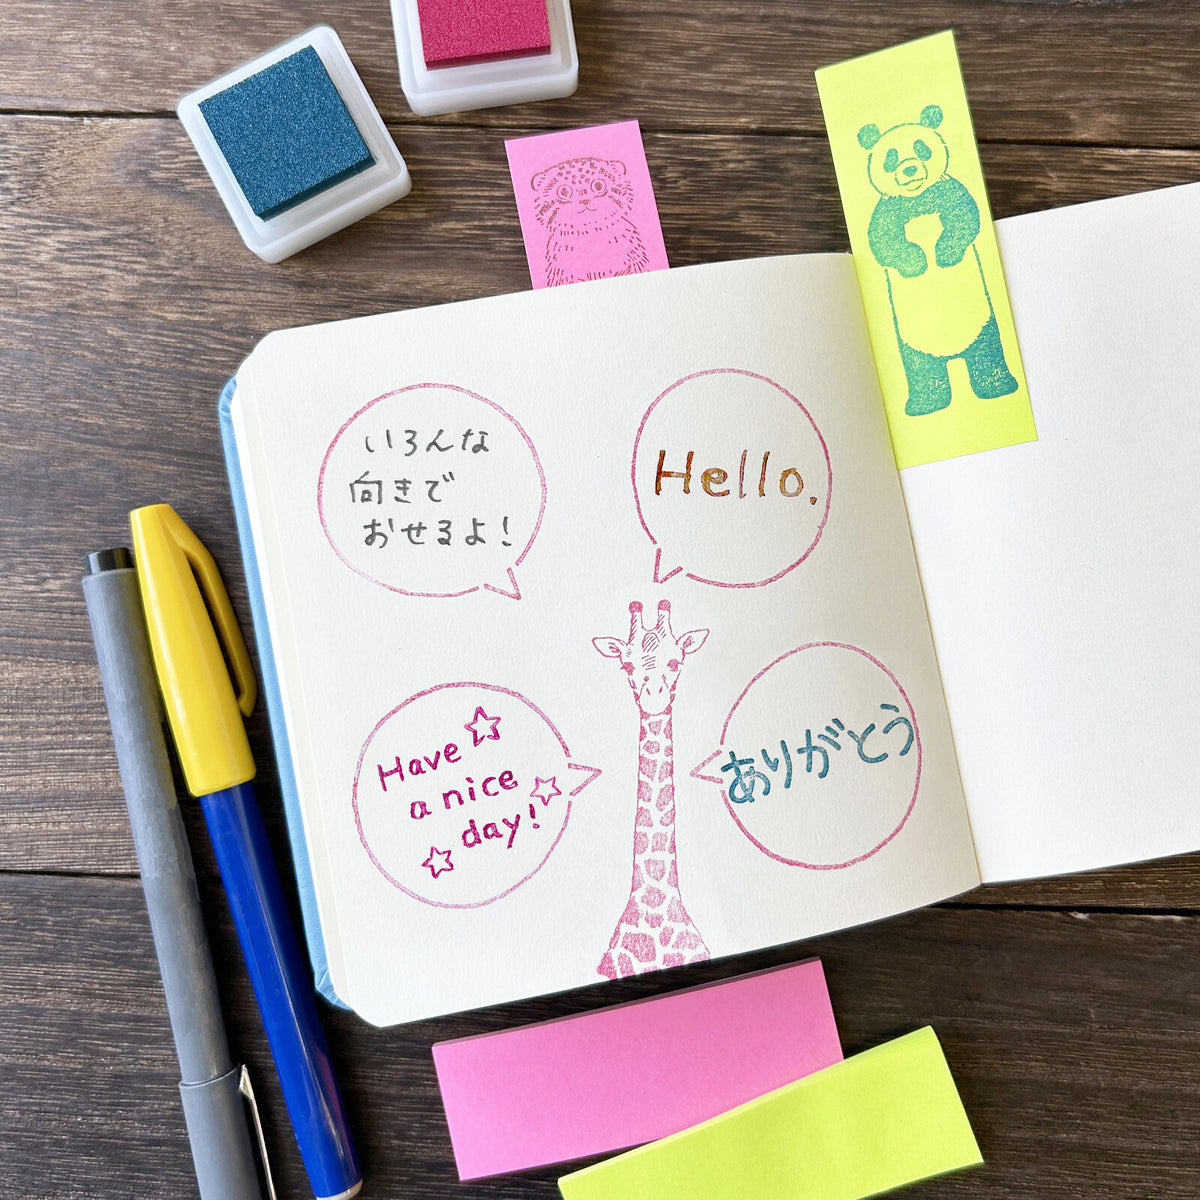 いろんな
向きで
おせるよ!
Hello.
Have
a nice
day!
ありがとう